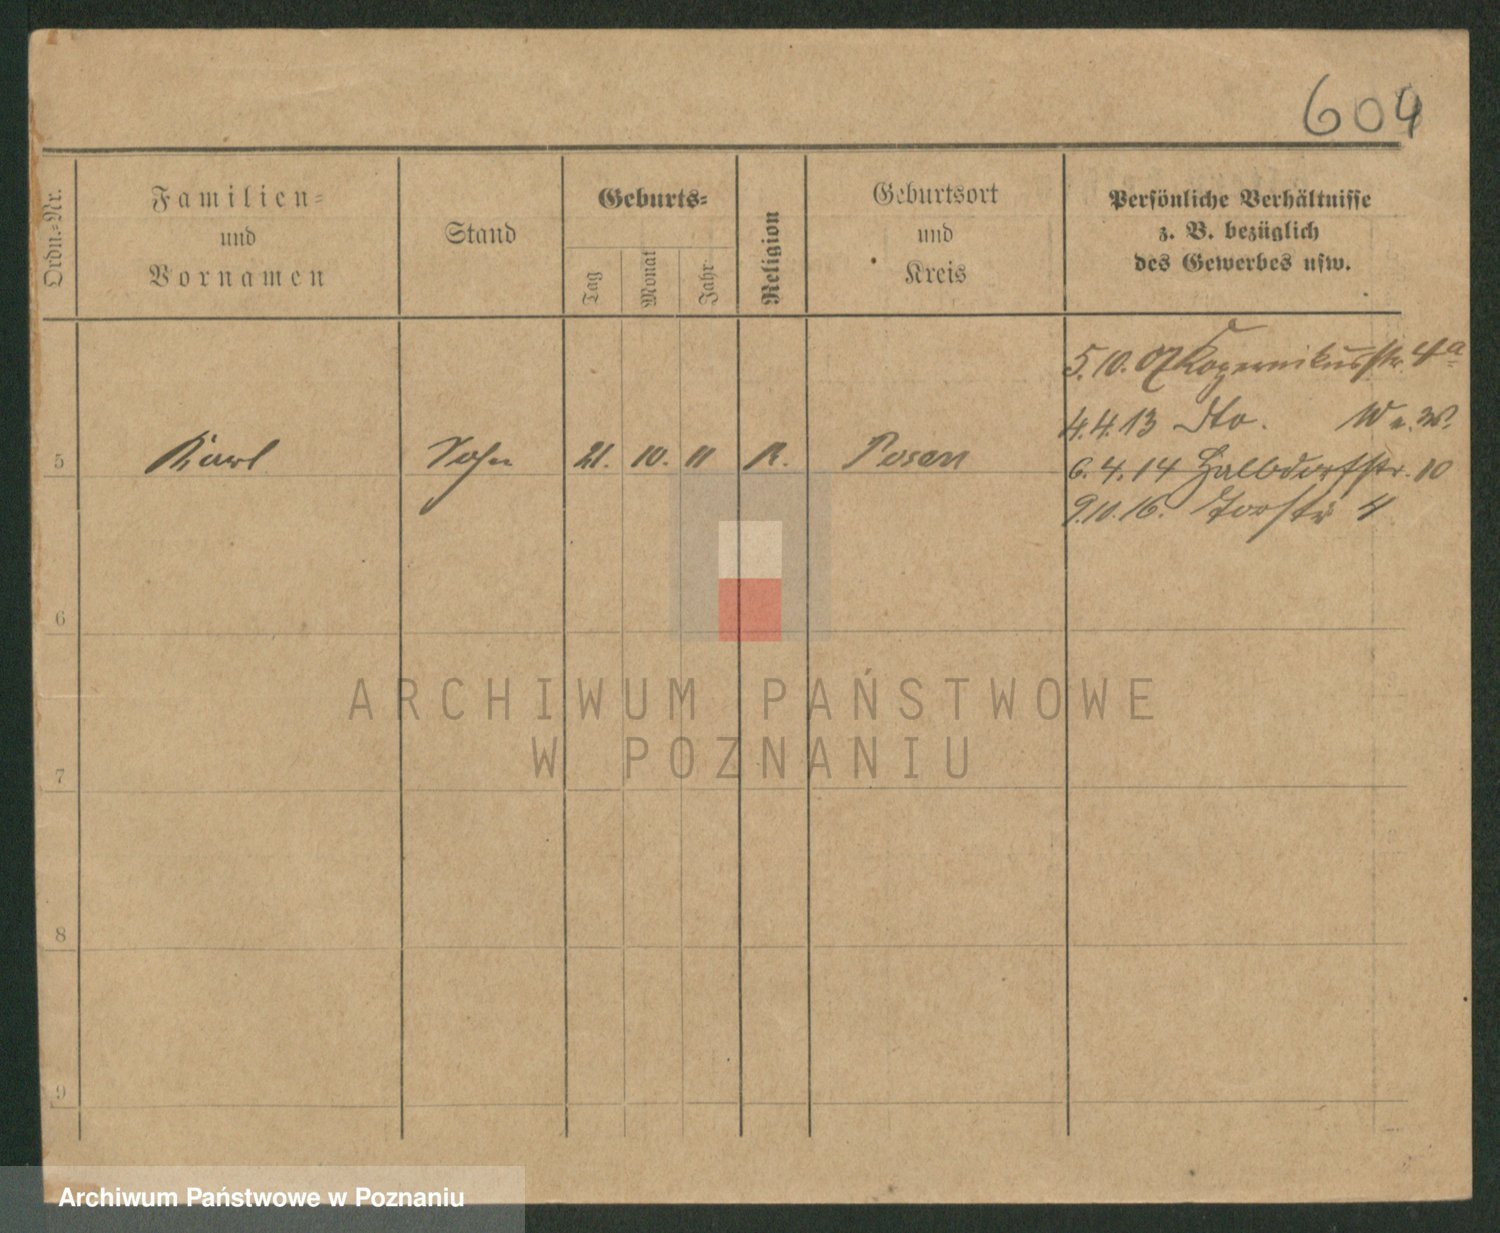 604
Ordn.=Nr.
Familien=
und
Vornamen
Stand
Geburts=
Tag
Monat
Jahr
Religion
Geburtsort
und
Kreis
Persönliche Verhältnisse
z. B. bezüglich
des Gewerbes usw.
5.10.07 Kopernikusstr. 4a
4.4.13 Dto. W. w.
5 Karl Sohn 21. 10. 11 R. Posen
6.4.14 Halbdorfstr. 10
9.10.16. Torstr 4
6
7
8
9
ARCHIWUM PAŃSTWOWE
W POZNANIU
Archiwum Państwowe w Poznaniu